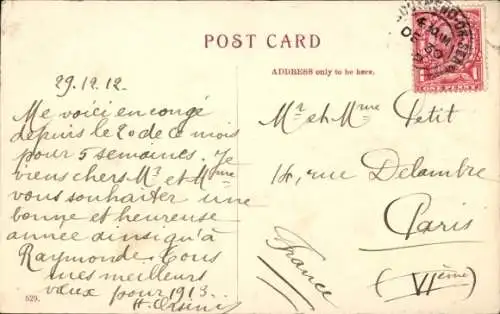 POST CARD
ADDRESS only to be here.
SOUTHEND-ON-SEA
ONE PENNY
29.12.12
Me voici en congé
depuis le 20 de ce mois
pour 5 semaines. Je
viens chers Mr et Mme
vous souhaiter une
bonne et heureuse
année ainsi qu'à
Raymonde. Tous
mes meilleurs
vœux pour 1913.
H. Orsini
Mr et Mme Petit
14, rue Delambre
Paris
(VIème)
France
529.